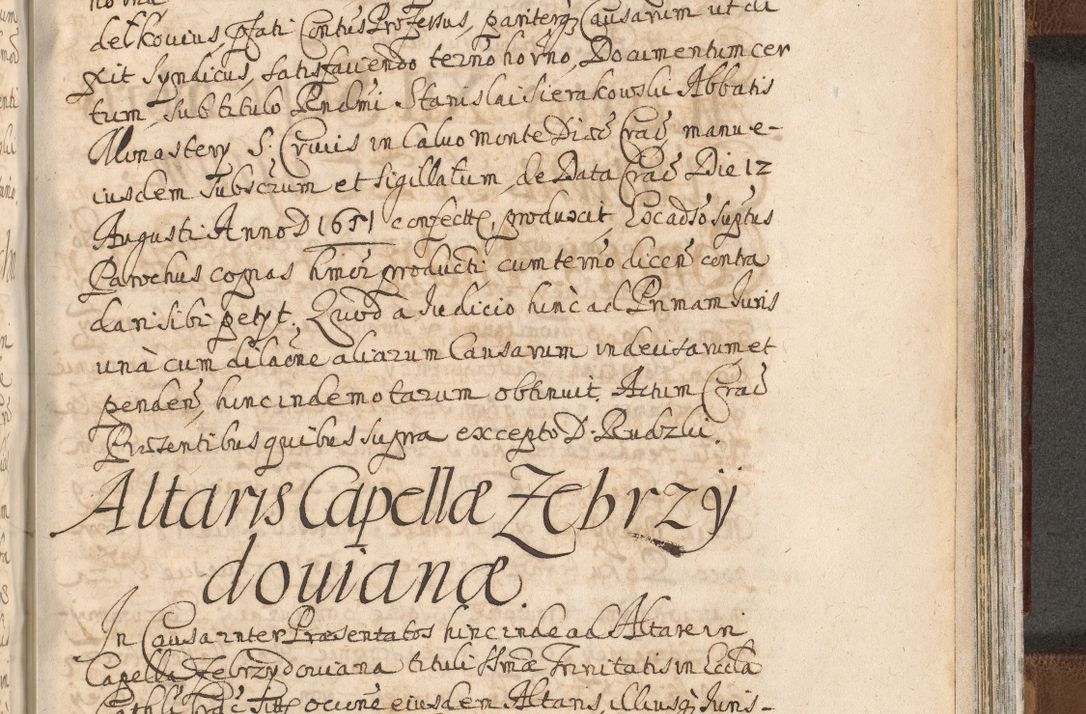 delkovius, pfati Contus Professus, pariterq Causarum ut di
xit Syndicus, satisfaciendo termo horno, Documentum cer
tum, sub titulo Rendmi Stanislai Sierakowski Abbatis
Monastery S. Crucis in Calvo Monte Dioc Crac manu e-
iusdem subscrum et sigillatum, de Data Crac Die 12
Augusti Anno D 1651 confectu, produxit, Ex adso suptus
Parochus copias hmoi producti cum termo dicen contra
dari sibi petyt. Quod a Iudicio hinc ad Primam Iuris
unà cum dilaone aliarum Causarum indecisarum et
penden, hincinde motarum obtinuit. Actum Crac
Præsentibus quibus supra excepto D. Rudzki.
Altaris Capellæ Zebrzÿ
dovianæ.
In Causa inter Præsentatos hincinde ad Altare in
Capella Zebrzydoviana tituli SSmæ Trinitatis in Eccla
Cathli Crac Titt ocione eiusdem Altaris, illiusq Iuris-